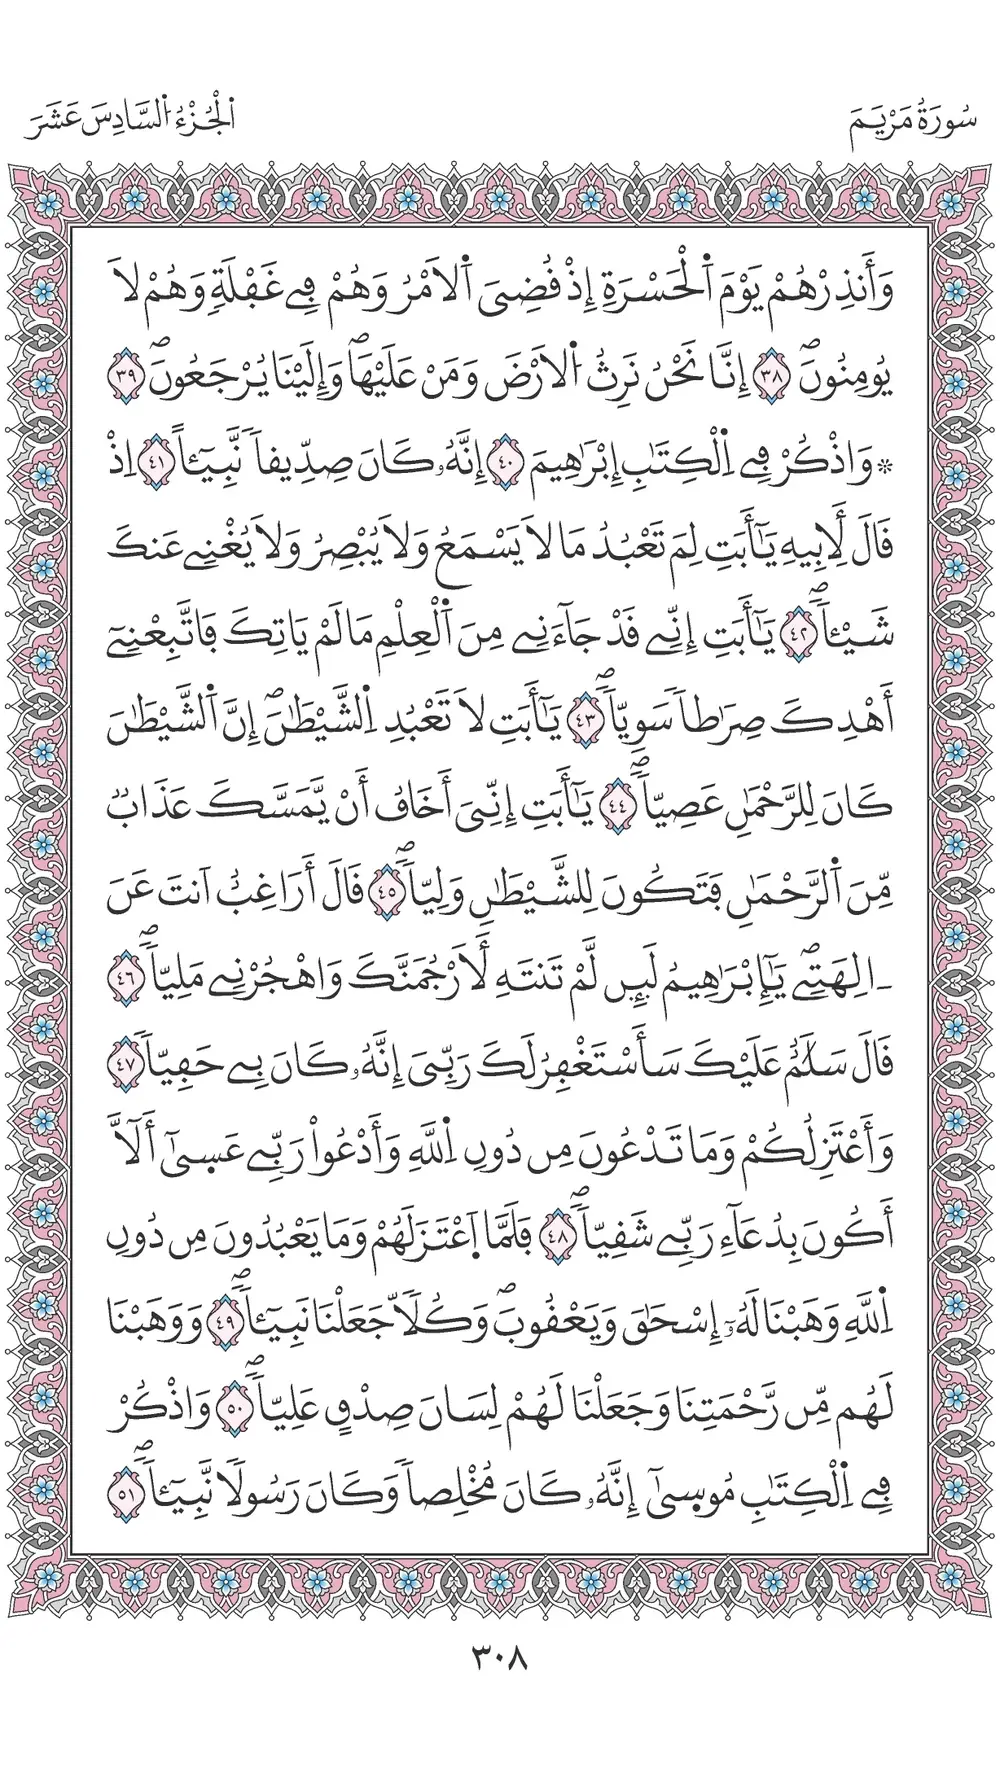 سُورَةُ مَرْيَمَ
اَ۬لْجُزْءُ اُ۬لسَّادِسَ عَشَرَ
وَأَنذِرْهُمْ يَوْمَ اَ۬لْحَسْرَةِ إِذْ قُضِيَ اَ۬لَامْرُ وَهُمْ فِے غَفْلَةٖ وَهُمْ لَا
يُومِنُونَۖ ٣٨ إِنَّا نَحْنُ نَرِثُ اُ۬لَارْضَ وَمَنْ عَلَيْهَاۖ وَإِلَيْنَا يُرْجَعُونَۖ ٣٩
۞وَاذْكُرْ فِے اِ۬لْكِتَٰبِ إِبْرَٰهِيمَ ٤٠ إِنَّهُۥ كَانَ صِدِّيقاٗ نَّبِيٓـٔاً ٤١ اِذْ
قَالَ لِأَبِيهِ يَٰٓأَبَتِ لِمَ تَعْبُدُ مَا لَا يَسْمَعُ وَلَا يُبْصِرُ وَلَا يُغْنِے عَنكَ
شَيْـٔاٗۖ ٤٢ يَٰٓأَبَتِ إِنِّے قَدْ جَآءَنِے مِنَ اَ۬لْعِلْمِ مَا لَمْ يَاتِكَ فَاتَّبِعْنِےٓ
أَهْدِكَ صِرَٰطاٗ سَوِيّاٗۖ ٤٣ يَٰٓأَبَتِ لَا تَعْبُدِ اِ۬لشَّيْطَٰنَۖ إِنَّ اَ۬لشَّيْطَٰنَ
كَانَ لِلرَّحْمَٰنِ عَصِيّاٗۖ ٤٤ يَٰٓأَبَتِ إِنِّيَ أَخَافُ أَنْ يَّمَسَّكَ عَذَابٞ
مِّنَ اَ۬لرَّحْمَٰنِ فَتَكُونَ لِلشَّيْطَٰنِ وَلِيّاٗۖ ٤٥ قَالَ أَرَاغِبٌ اَنتَ عَنَ
ـ اٰلِهَتِےۖ يَٰٓإِبْرَٰهِيمُ لَئِن لَّمْ تَنتَهِ لَأَرْجُمَنَّكَ وَاهْجُرْنِے مَلِيّاٗۖ ٤٦
قَالَ سَلَٰمٌ عَلَيْكَ سَأَسْتَغْفِرُ لَكَ رَبِّيَ إِنَّهُۥ كَانَ بِے حَفِيّاٗ ٤٧
وَأَعْتَزِلُكُمْ وَمَا تَدْعُونَ مِن دُونِ اِ۬للَّهِ وَأَدْعُواْ رَبِّے عَس۪ىٰٓ أَلَّآ
أَكُونَ بِدُعَآءِ رَبِّے شَقِيّاٗۖ ٤٨ فَلَمَّا اَ۪عْتَزَلَهُمْ وَمَا يَعْبُدُونَ مِن دُونِ
اِ۬للَّهِ وَهَبْنَا لَهُۥٓ إِسْحَٰقَ وَيَعْقُوبَۖ وَكُلّاٗ جَعَلْنَا نَبِيٓـٔاٗۖ ٤٩ وَوَهَبْنَا
لَهُم مِّن رَّحْمَتِنَا وَجَعَلْنَا لَهُمْ لِسَانَ صِدْقٍ عَلِيّاٗۖ ٥٠ وَاذْكُرْ
فِے اِ۬لْكِتَٰبِ مُوس۪ىٰٓ إِنَّهُۥ كَانَ مُخْلِصاٗ وَكَانَ رَسُولاٗ نَّبِيٓـٔاٗۖ ٥١
٣٠٨